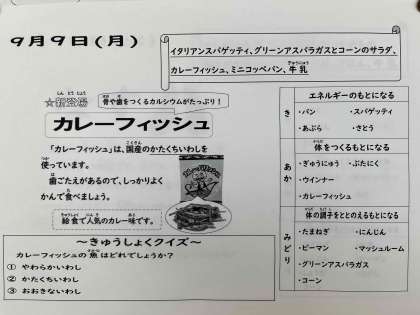 9月9日(月)
イタリアンスパゲッティ、グリーンアスパラガスとコーンのサラダ、
カレーフィッシュ、ミニコッペパン、牛乳
ぎゅうにゅう
しんとうじょう
☆新登場
ほね は
骨や歯をつくるカルシウムがたっぷり!
カレーフィッシュ
こくさん
「カレーフィッシュ」は、国産のかたくちいわしを
つか
使っています。
は
歯ごたえがあるので、しっかりよく
た
かんで食べましょう。
きゅうしょく にんき あじ
給食で人気のカレー味です。
~きゅうしょくクイズ~
さかな
カレーフィッシュの魚はどれでしょうか?
① やわらかいわし
② かたくちいわし
③ おおきないわし
エネルギーのもとになる
き
・パン ・スパゲティ
・あぶら ・さとう
からだ
体をつくるもとになる
あか
・ぎゅうにゅう ・ぶたにく
・ウインナー
・カレーフィッシュ
からだ ちょうし
体の調子をととのえるもとになる
みどり
・たまねぎ ・にんじん
・ピーマン ・マッシュルーム
・グリーンアスパラガス
・コーン